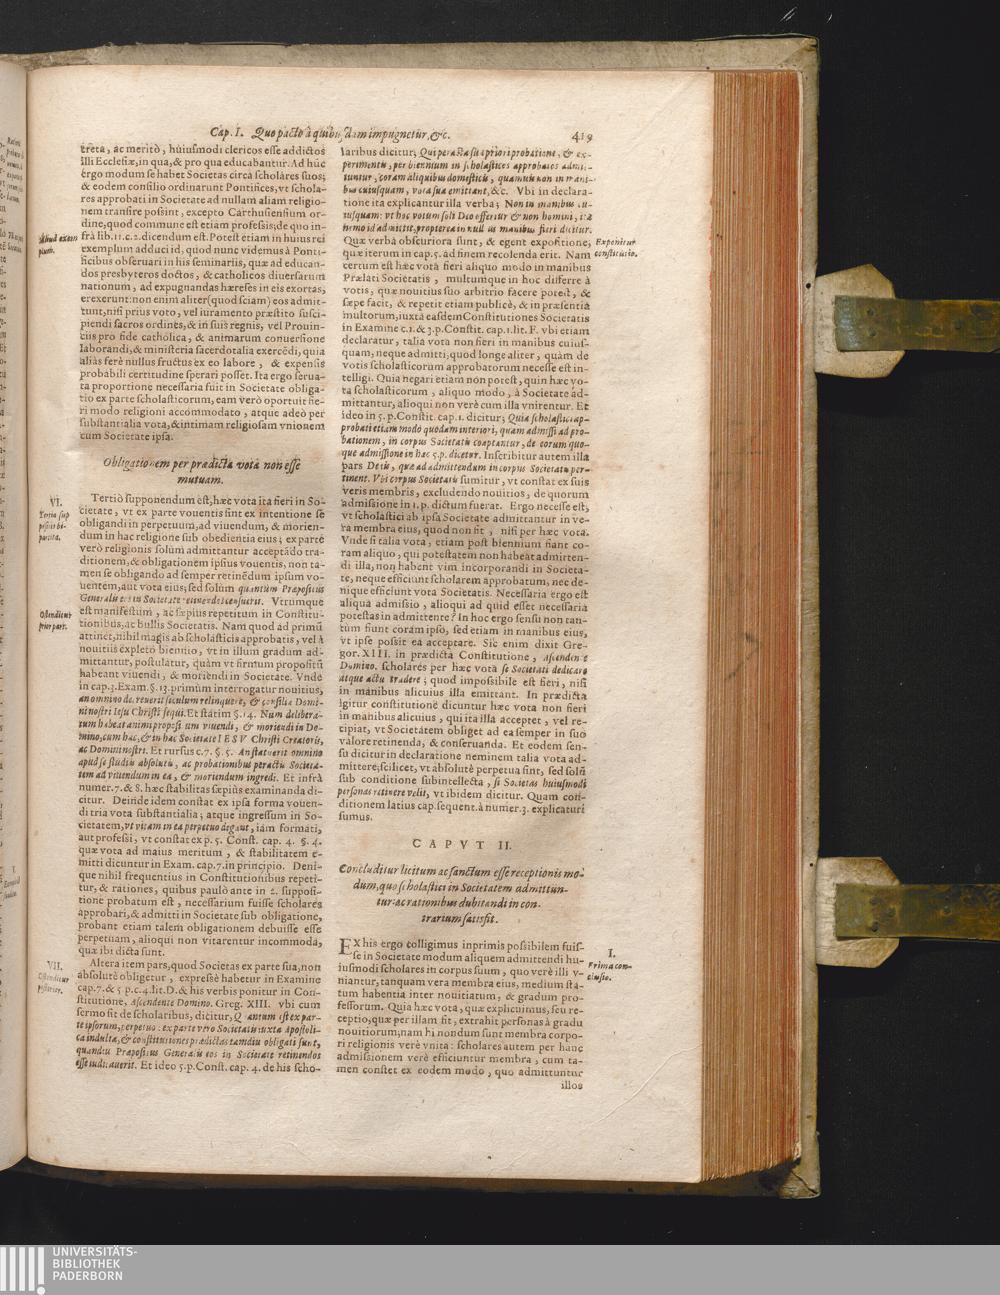 Cap. I. Quo pacto à quibusdam impugnetur, &c. 419
creta, ac meritò, huiusmodi clericos esse addictos
illi Ecclesiæ, in qua, & pro qua educabantur. Ad hûc
ergo modum se habet Societas circa scholares suos;
& eodem consilio ordinarunt Pontifices, vt schola-
res approbati in Societate ad nullam aliam religio-
nem transire possint, excepto Carthusiensium or-
dine, quod commune est etiam professis; de quo in-
Aliud exem
plum.
frà lib. 11. c. 2. dicendum est. Potest etiam in huius rei
exemplum adduci id, quod nunc videmus à Ponti-
ficibus obseruari in his seminariis, quæ ad educan-
dos presbyteros doctos, & catholicos diuersarum
nationum, ad expugnandas hæreses in eis exortas,
erexerunt: non enim aliter (quod sciam) eos admit-
tunt, nisi prius voto, vel iuramento præstito susci-
piendi sacros ordines, & in suis regnis, vel Prouin-
ciis pro fide catholica, & animarum conuersione
laborandi, & ministeria sacerdotalia exercēdi, quia
aliàs ferè nullus fructus ex eo labore, & expensis
probabili certitudine sperari posset. Ita ergo serua-
ta proportione necessaria fuit in Societate obliga-
tio ex parte scholasticorum, eam verò oportuit fie-
ri modo religioni accommodato, atque adeò per
substantialia vota, & intimam religiosam vnionem
cum Societate ipsa.
Obligationem per prædicta vota non esse
mutuam.
VI.
Tertia sup
positio bi-
partita.
Tertiò supponendum est, hæc vota ita fieri in So-
cietate, vt ex parte vouentis sint ex intentione se
obligandi in perpetuum, ad viuendum, & morien-
dum in hac religione sub obedientia eius; ex parte
verò religionis solùm admittantur acceptādo tra-
ditionem, & obligationem ipsius vouentis, non ta-
men se obligando ad semper retinēdum ipsum vo-
uentem, aut vota eius; sed solùm quantùm Præpositus
Generalis eos in Societate retinendos censuerit. Vtrumque
Ostenditur
prior pars.
est manifestum, ac sæpius repetitum in Constitu-
tionibus, ac bullis Societatis. Nam quod ad primū
attinet, nihil magis ab scholasticis approbatis, vel à
nouitiis expleto biennio, vt in illum gradum ad-
mittantur, postulatur, quàm vt firmum propositū
habeant viuendi, & moriendi in Societate. Vnde
in cap. 3. Exam. §. 13. primùm interrogatur nouitius,
an omnino deliuerit sæculum relinquere, & consilia Domi-
ni nostri Iesu Christi sequi. Et statim §. 14. Num delibera-
tum habeat animi propositum viuendi, & moriendi in Do-
mino, cum hac, & in hac Societate IESV Christi Creatoris,
ac Domini nostri. Et rursus c. 7. §. 5. An statuerit omnino
apud se studiis absolutis, ac probationibus peractis Societa-
tem ad viuendum in ea, & moriendum ingredi. Et infrà
numer. 7. & 8. hæc stabilitas sæpiùs examinanda di-
citur. Deinde idem constat ex ipsa forma vouen-
di tria vota substantialia; atque ingressum in So-
cietatem, vt vitam in ea perpetuo degant, iam formati,
aut professi, vt constat ex p. 5. Const. cap. 4. §. 4.
quæ vota ad maius meritum, & stabilitatem e-
mitti dicuntur in Exam. cap. 7. in principio. Deni-
que nihil frequentius in Constitutionibus repeti-
tur, & rationes, quibus paulò ante in 2. supposi-
tione probatum est, necessarium fuisse scholares
approbari, & admitti in Societate sub obligatione,
probant etiam talem obligationem debuisse esse
perpetuam, alioqui non vitarentur incommoda,
quæ ibi dicta sunt.
VII.
Ostenditur
posterior.
Altera item pars, quod Societas ex parte sua, non
absolutè obligetur, expressè habetur in Examine
cap. 7. & 5 p. c. 4. lit. D. & his verbis ponitur in Con-
stitutione, Ascendente Domino. Greg. XIII. vbi cum
sermo sit de scholaribus, dicitur, Quantum est ex par-
te ipsorum, perpetuo: ex parte vero Societatis iuxta Apostoli-
ca indulta, & constitutiones prædictas tamdiu obligati sunt,
quandiu Præpositus Generalis eos in Societate retinendos
esse iudicauerit. Et ideo 5. p. Const. cap. 4. de his scho-
laribus dicitur; Qui peracta sua priori probatione, & ex-
perimentis, per biennium in scholasticos approbatos admit-
tuntur, coram aliquibus domesticis, quamuis non in mani-
bus cuiusquam, vota sua emittant, &c. Vbi in declara-
tione ita explicantur illa verba; Non in manibus cu-
iusquam: vt hoc votum soli Deo offertur & non homini, ita
nemo id admittit, propterea in nullius manibus fieri dicitur.
Exponitur
constitutio.
Quæ verba obscuriora sunt, & egent expositione,
quæ iterum in cap. 5. ad finem recolenda erit. Nam
certum est hæc vota fieri aliquo modo in manibus
Prælati Societatis, multumque in hoc differre à
votis, quæ nouitius suo arbitrio facere potest, &
sæpe facit, & repetit etiam publicè, & in præsentia
multorum, iuxtà easdem Constitutiones Societatis
in Examine c. 1. & 3. p. Constit. cap. 1. lit. F. vbi etiam
declaratur, talia vota non fieri in manibus cuius-
quam, neque admitti, quod longe aliter, quàm de
votis scholasticorum approbatorum necesse est in-
telligi. Quia negari etiam non potest, quin hæc vo-
ta scholasticorum, aliquo modo, à Societate ad-
mittantur, alioqui non verè cum illa vnirentur. Et
ideo in 5. p. Constit. cap. 1. dicitur; Quia scholastici ap-
probati etiam modo quodam interiori, quam admissi ad pro-
bationem, in corpus Societatis cooptantur, de eorum quo-
que admissione in hac 5. p. dicetur. Inscribitur autem illa
pars De iis, quæ ad admittendum in corpus Societatis per-
tinent. Vbi corpus Societatis sumitur, vt constat ex suis
veris membris, excludendo nouitios, de quorum
admissione in 1. p. dictum fuerat. Ergo necesse est,
vt scholastici ab ipsa Societate admittantur in ve-
ra membra eius, quod non fit, nisi per hæc vota.
Vnde si talia vota, etiam post biennium fiant co-
ram aliquo, qui potestatem non habeat admitten-
di illa, non habent vim incorporandi in Societa-
te, neque efficiunt scholarem approbatum, nec de-
nique efficiunt vota Societatis. Necessaria ergo est
aliqua admissio, alioqui ad quid esset necessaria
potestas in admittente? In hoc ergo sensu non tan-
tùm fiunt coram ipso, sed etiam in manibus eius,
vt ipse possit ea acceptare. Sic enim dixit Gre-
gor. XIII. in prædicta Constitutione, Ascendente
Domino. scholares per hæc vota se Societati dedicare
atque actu tradere; quod impossibile est fieri, nisi
in manibus alicuius illa emittant. In prædicta
igitur constitutione dicuntur hæc vota non fieri
in manibus alicuius, qui ita illa acceptet, vel re-
cipiat, vt Societatem obliget ad ea semper in suo
valore retinenda, & conseruanda. Et eodem sen-
su dicitur in declaratione neminem talia vota ad-
mittere; scilicet, vt absolutè perpetua sint, sed solū
sub conditione subintellecta, si Societas huiusmodi
personas retinere velit, vt ibidem dicitur. Quam con-
ditionem latius cap. sequent. à numer. 3. explicaturi
sumus.
CAPVT II.
Concluditur licitum ac sanctum esse receptionis mo-
dum, quo scholastici in Societatem admittun-
tur: ac rationibus dubitandi in con-
trarium satisfit.
I.
Prima con-
clusio.
EX his ergo colligimus inprimis possibilem fuis-
se in Societate modum aliquem admittendi hu-
iusmodi scholares in corpus suum, quo verè illi v-
niantur, tanquam vera membra eius, medium sta-
tum habentia inter nouitiatum, & gradum pro-
fessorum. Quia hæc vota, quæ explicuimus, seu re-
ceptio, quæ per illam fit, extrahit personas à gradu
nouitiorum; nam hi nondum sunt membra corpo-
ri religionis verè vnita: scholares autem per hanc
admissionem verè efficiuntur membra, cum ta-
men constet ex eodem modo, quo admittuntur
illos
UNIVERSITÄTS-
BIBLIOTHEK
PADERBORN